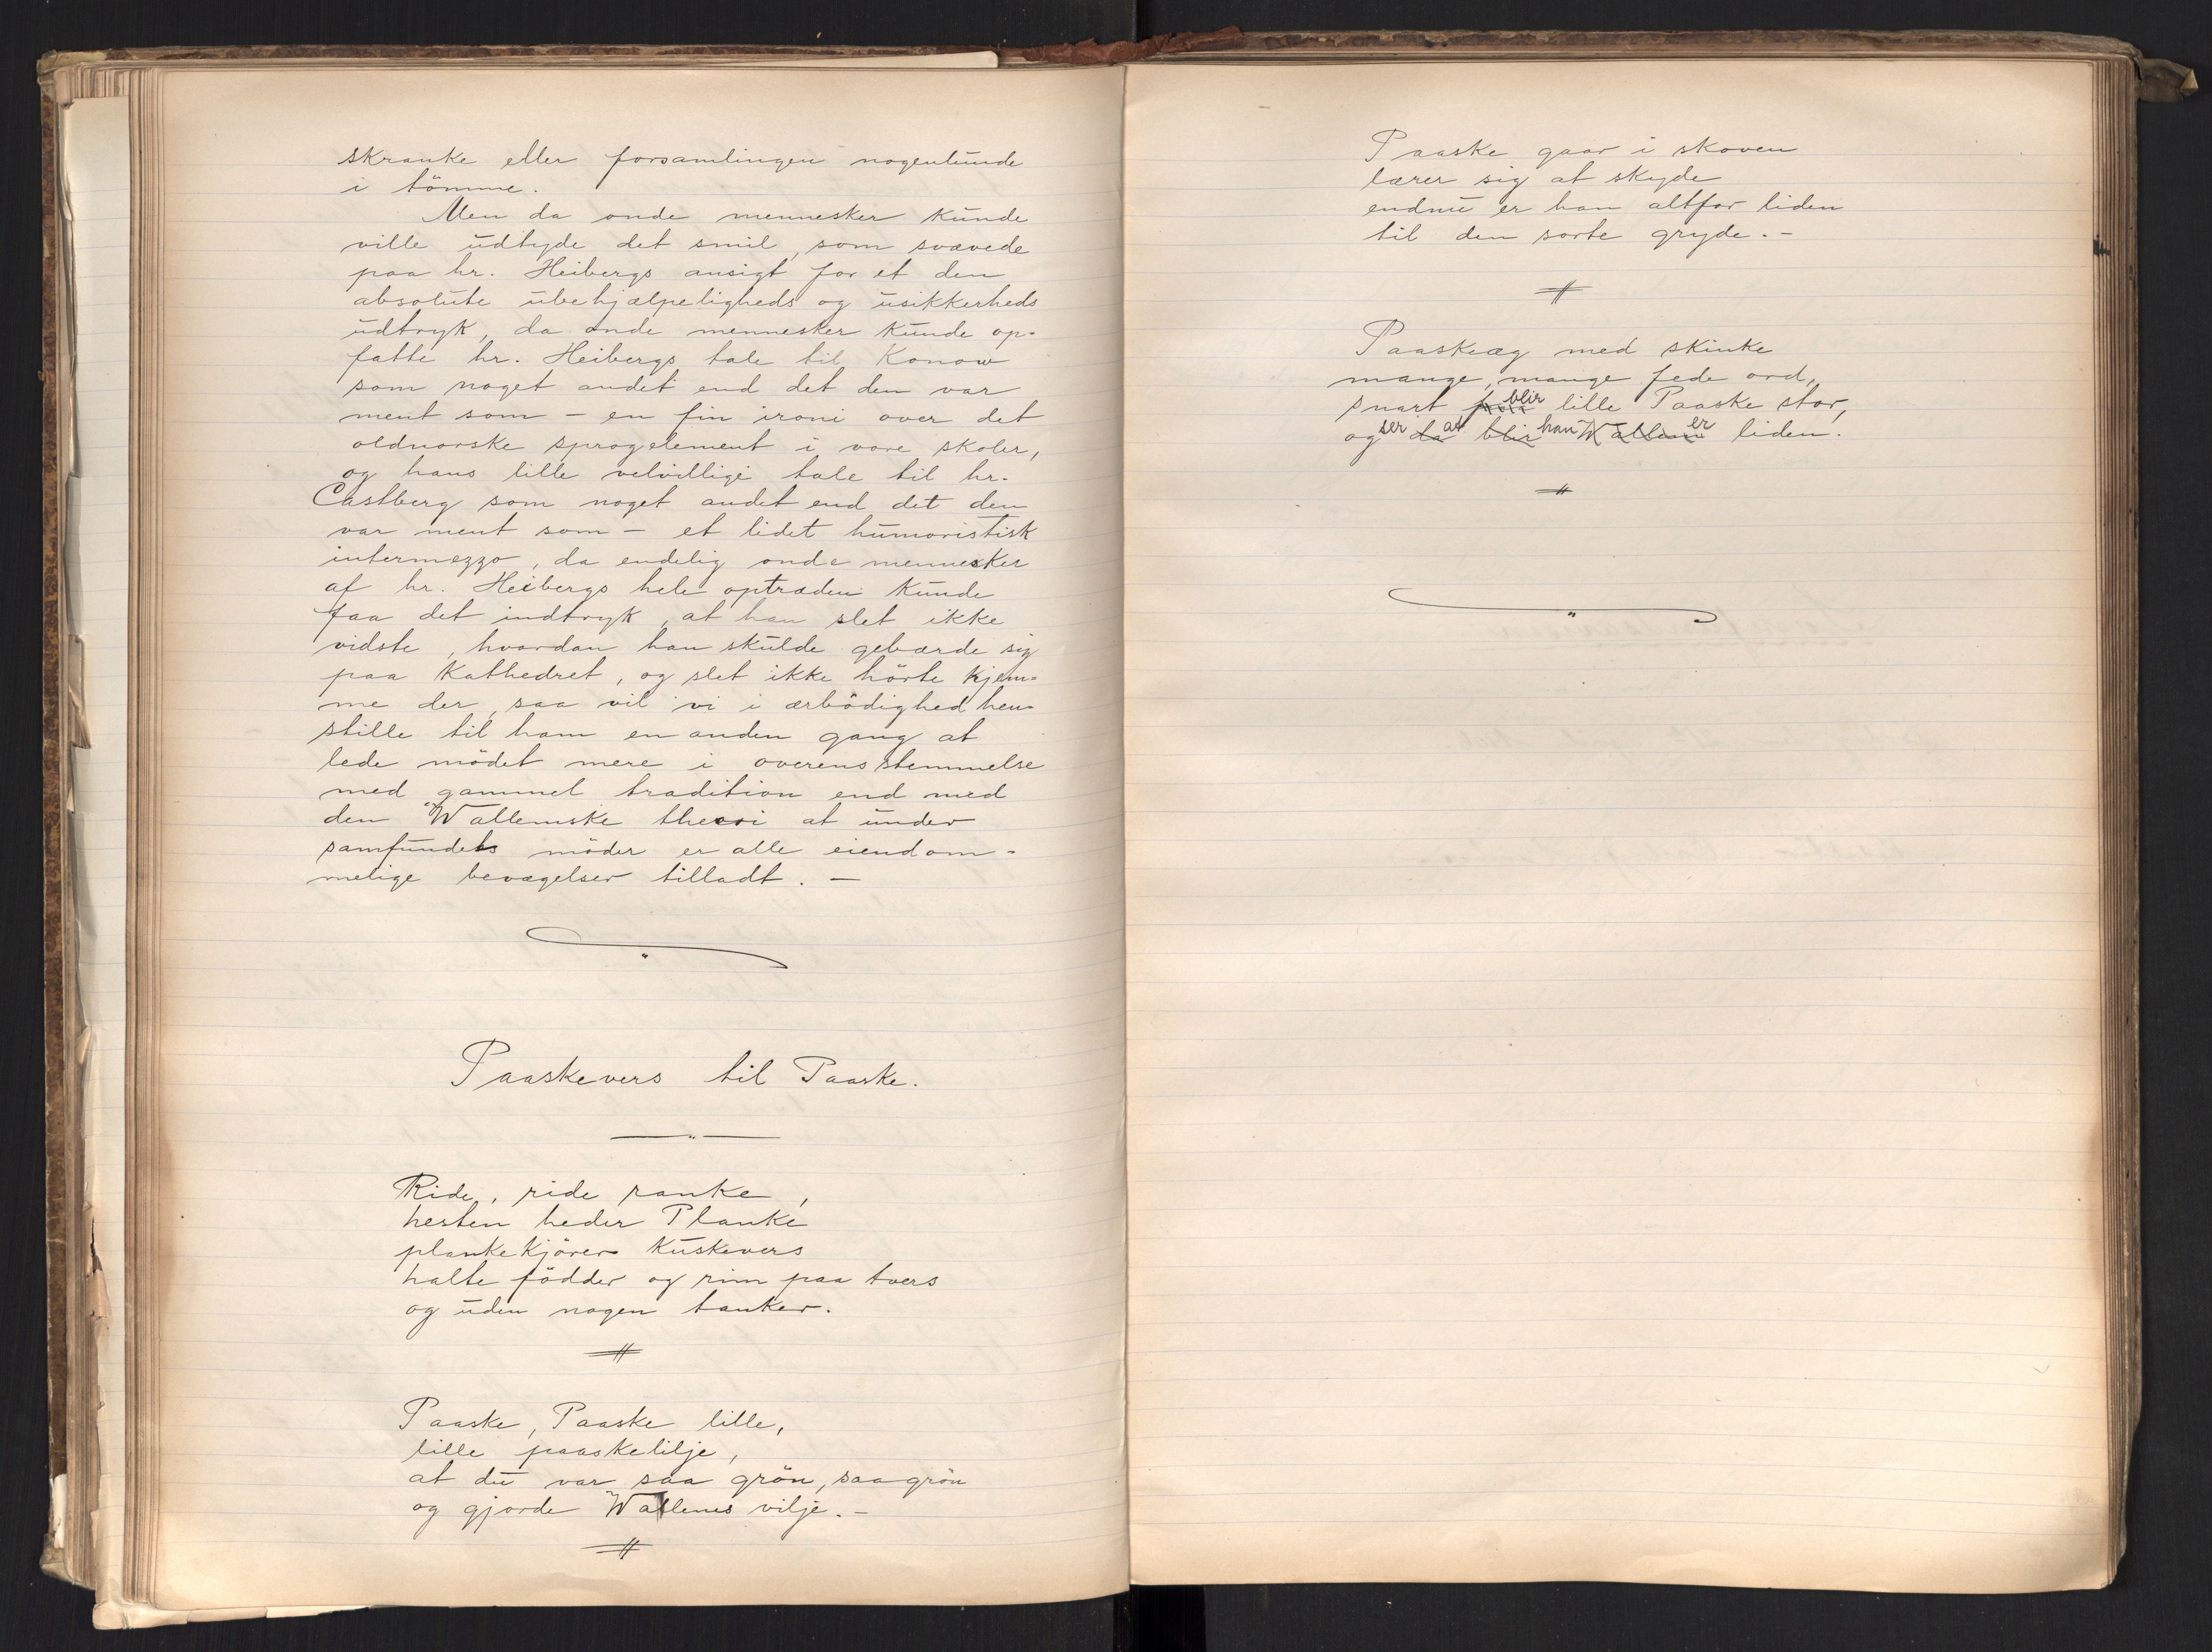 skranke eller forsamlingen nogenlunde
i tömme.
Men da onde mennesker kunde
ville udtyde det smil, som svævede
paa hr. Heibergs ansigt for et den
absolute ubehjælpeligheds og usikkerheds
udtryk, da onde mennesker kunde op-
fatte hr. Heibergs tale til Konow
som noget andet end det den var
ment som – en fin ironi over det
oldnorske sprogelement i vore skoler,
og hans lille velvillige tale til hr.
Castberg som noget andet end det den
var ment som – et lidet humoristisk
intermezzo, da endelig onde mennesker
af hr. Heibergs hele optræden kunde
faa det indtryk, at han slet ikke
vidste, hvordan han skulde gebærde sig
paa Kathedret, og slet ikke hörte hjem=
me der, saa vil vi i ærbödighed hen=
stille til ham en anden gang at
lede mödet mere i overensstemmelse
med gammel tradition end med
den Wallemske theori at under
samfundets möder er alle eiendom=
melige bevægelser tilladt. –
Paaskevers til Paaske.
Ride, ride ranke,
hesten heder Planke
planke kjörer Kuskevers
halte födder og rim paa tvers
og uden nogen tanker.
Paaske, Paaske lille,
lille paaskelilje,
at du var saa grön, saa grön
og gjorde Wallems vilje. –
Paaske gaar i skoven
lærer sig at skyde
endnu er han altfor liden
til den sorte gryde. –
Paaskeæg med skinke
mange, mange fede ord,
snart blir lille Paaske stor,
og ser da at blir han Wallem er liden.